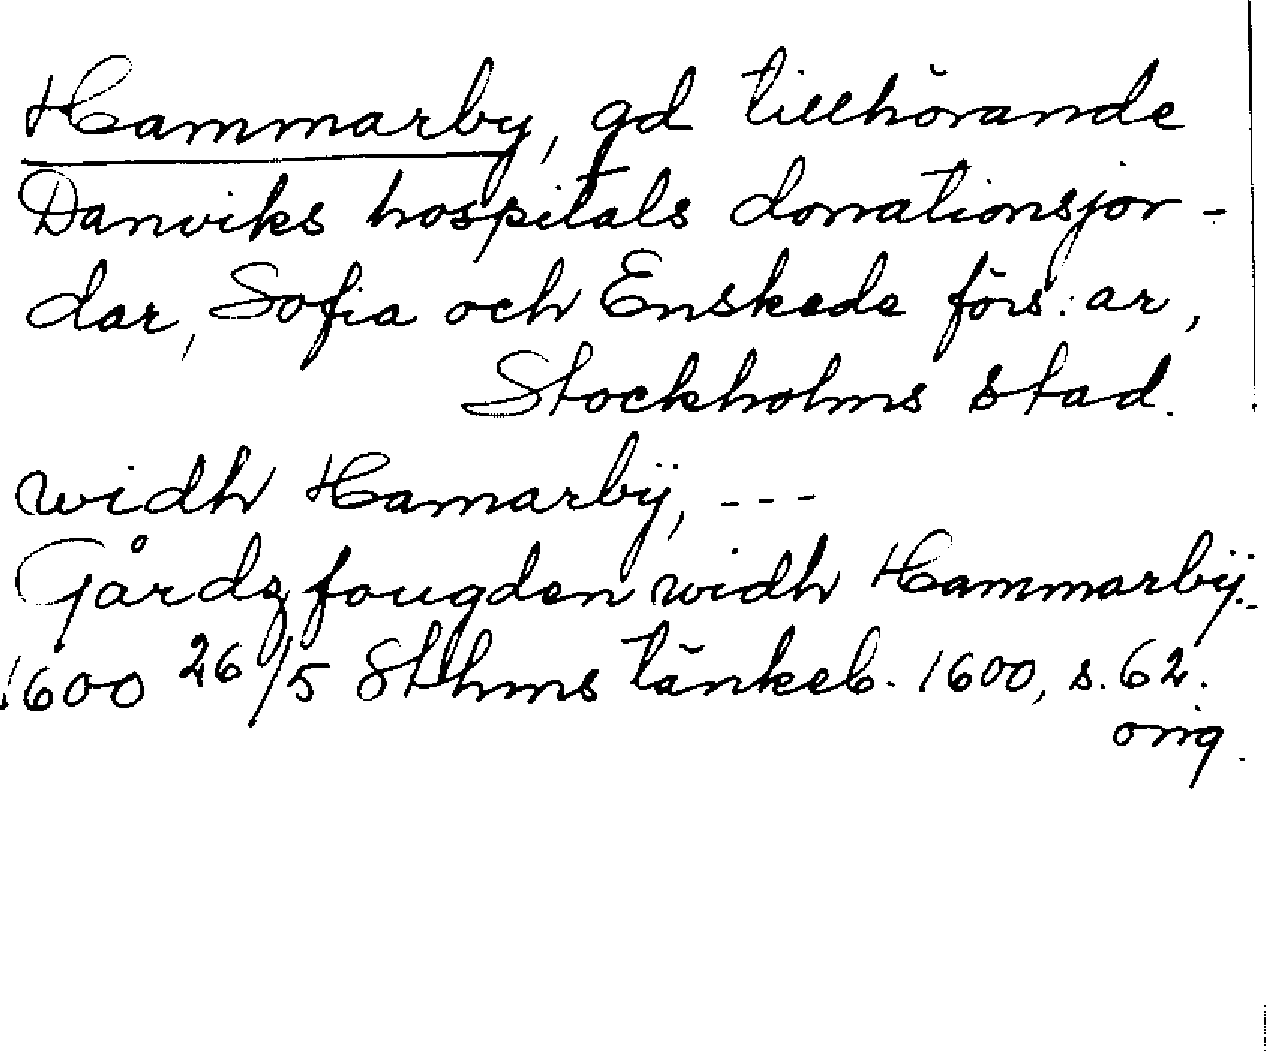 Hammarby, gd tillhörande
Danviks hospitals donationsjor-
dar, Sofia och Enskede förs:ar,
Stockholms stad.
widh Hamarbÿ, ---
Gårdzfougden widh Hammarbÿ.
1600 26/5 Sthms tänkeb. 1600, s. 62.
orig.